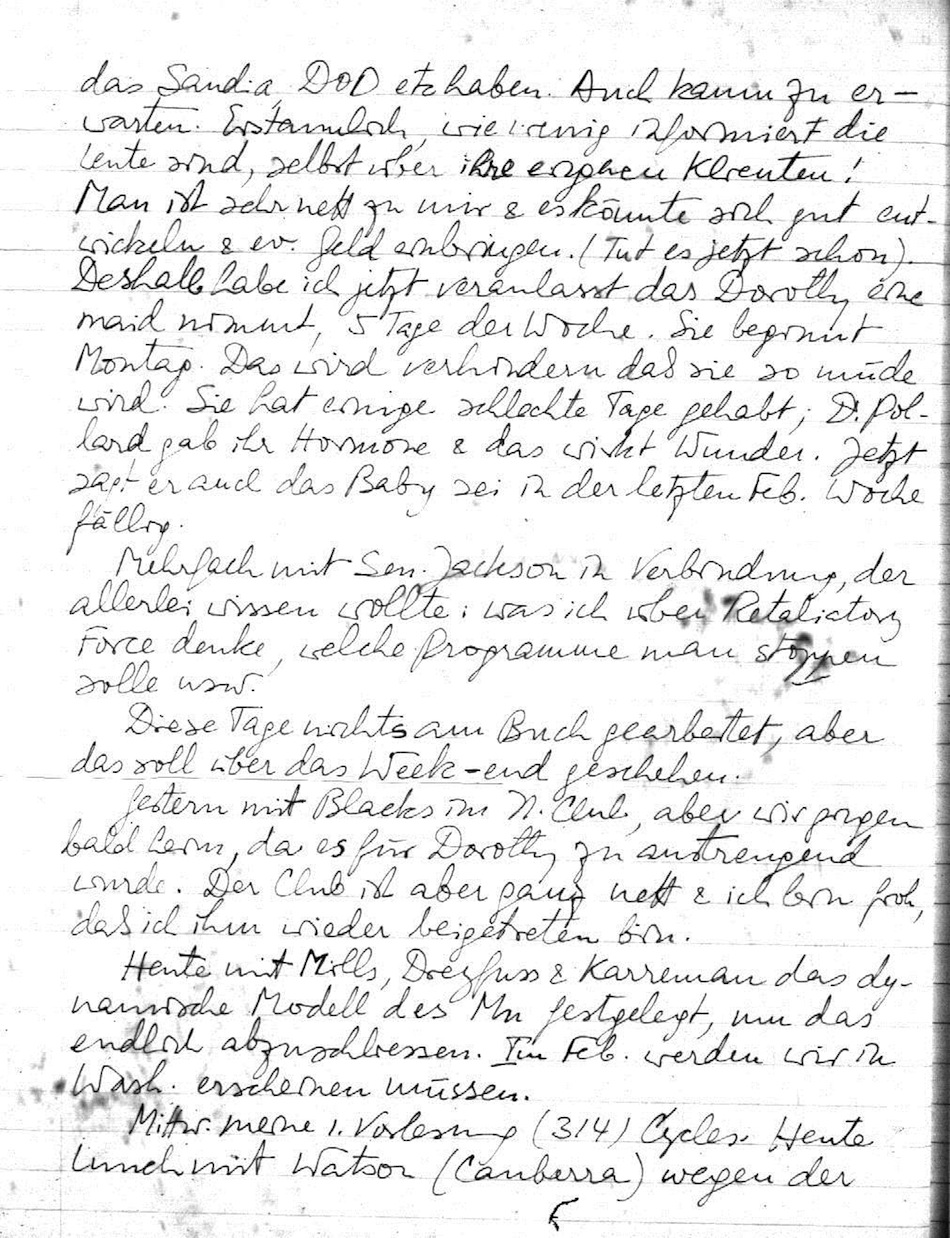 das Sandia, DoD etc haben. Auch kaum zu er-
warten. Erstaunlich, wie wenig informiert die
Leute sind, selbst über ihre eigenen Klienten!
Man ist sehr nett zu mir & es könnte sich gut ent-
wickeln & ev. Geld einbringen. (Tut es jetzt schon).
Deshalb habe ich jetzt veranlasst das Dorothy eine
maid nimmt, 5 Tage der Woche. Sie beginnt
Montag. Das wird verhindern daß sie so müde
wird. Sie hat einige schlechte Tage gehabt; D. Pol-
lard gab ihr Hormone & das wirkt Wunder. Jetzt
sagt er auch das Baby sei in der letzten Feb. Woche
fällig.
Mehrfach mit Sen. Jackson in Verbindung, der
allerlei wissen wollte: was ich über Retaliatory
Force denke, welche Programme man stoppen
solle usw.
Diese Tage nichts am Buch gearbeitet, aber
das soll über das Week-end geschehen.
Gestern mit Blacks im N. Club, aber wir gingen
bald heim, da es für Dorothy zu anstrengend
wurde. Der Club ist aber ganz nett & ich bin froh,
daß ich ihm wieder beigetreten bin.
Heute mit Mills, Dreyfuss & Karreman das dy-
namische Modell des Mn festgelegt, um das
endlich abzuschliessen. Im Feb. werden wir in
Wash. erscheinen müssen.
Mittw. meine 1. Vorlesung (314) Cycles. Heute
Lunch mit Watson (Canberra) wegen der